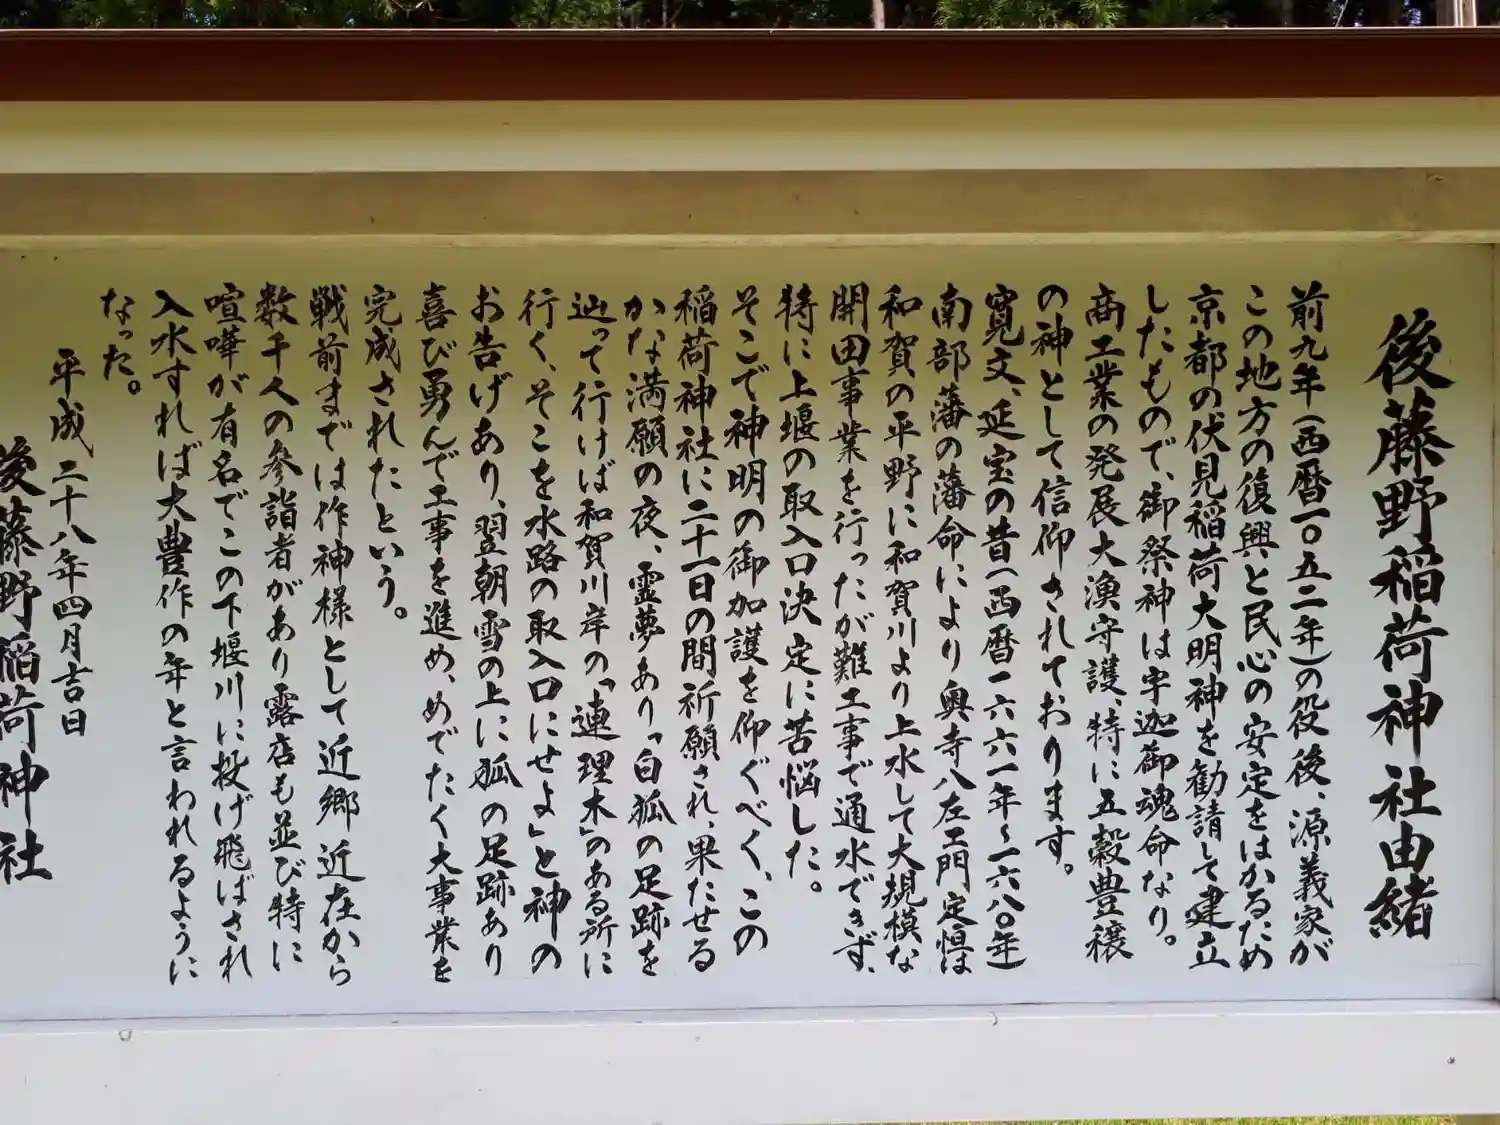 後藤野稲荷神社由緒
前九年(西暦一〇五二年)の役後、源義家が
この地方の復興と民心の安定をはかるため
京都の伏見稲荷大明神を勧請して建立
したもので、御祭神は宇迦御魂命なり。
商工業の発展大漁守護、特に五穀豊穣
の神として信仰されております。
寛文、延宝の昔(西暦一六六一年〜一六八〇年)
南部藩の藩命により奥寺八左エ門定恒は
和賀の平野に和賀川より上水して大規模な
開田事業を行ったが難工事で通水できず、
特に上堰の取入口決定に苦悩した。
そこで神明の御加護を仰ぐべく、この
稲荷神社に二十一日の間祈願され、果たせる
かな満願の夜、霊夢あり「白狐の足跡を
辿って行けば和賀川岸の「連理木」のある所に
行く、そこを水路の取入口にせよ」と神の
お告げあり、翌朝雪の上に狐の足跡あり
喜び勇んで工事を進め、めでたく大事業を
完成されたという。
戦前までは作神様として近郷近在から
数千人の参詣者があり露店も並び特に
喧嘩が有名でこの下堰川に投げ飛ばされ
入水すれば大豊作の年と言われるように
なった。
平成二十八年四月吉日
後藤野稲荷神社